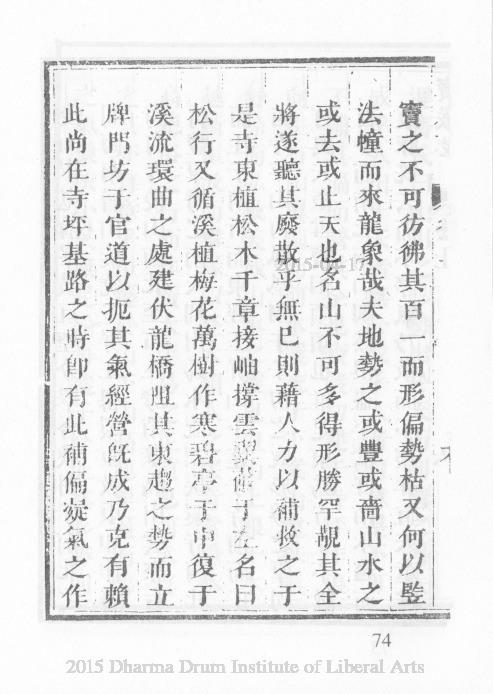 寶之不可彷彿其百一而形偏勢枯又何以豎
法幢而來龍象哉夫地勢之或豐或嗇山水之
或去或止天也名山不可多得形勝罕覩其全
將遂聽其廢散乎無已則藉人力以補救之于
是寺東植松木千章接岫撐雲翼蔽于左名曰
松行又循溪植梅花萬樹作寒碧亭于中復于
溪流環曲之處建伏龍橋阻其東趨之勢而立
牌門坊于官道以扼其氣經營旣成乃克有賴
此尚在寺坪基路之時卽有此補偏凝氣之作
2015-04-17
74
2015 Dharma Drum Institute of Liberal Arts